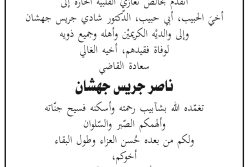 أتقدم بخالص تعازيّ القلبية الحارة إلى
أخيّ الحبيب، أبي حبيب، الدكتور شادي جريس جهشان
وإلى والديْه الكريمَيْن وأهله وجميع ذويه
لوفاة فقيدهم، أخيه الغالي
سعادة القاضي
ناصر جريس جهشان
تغمّده الله بشآبيب رحمته وأسكنه فسيح جنّاته
وألهمكم الصّبر والسّلوان
ولكم من بعده حُسن العزاء وطول البقاء
أخوكم،